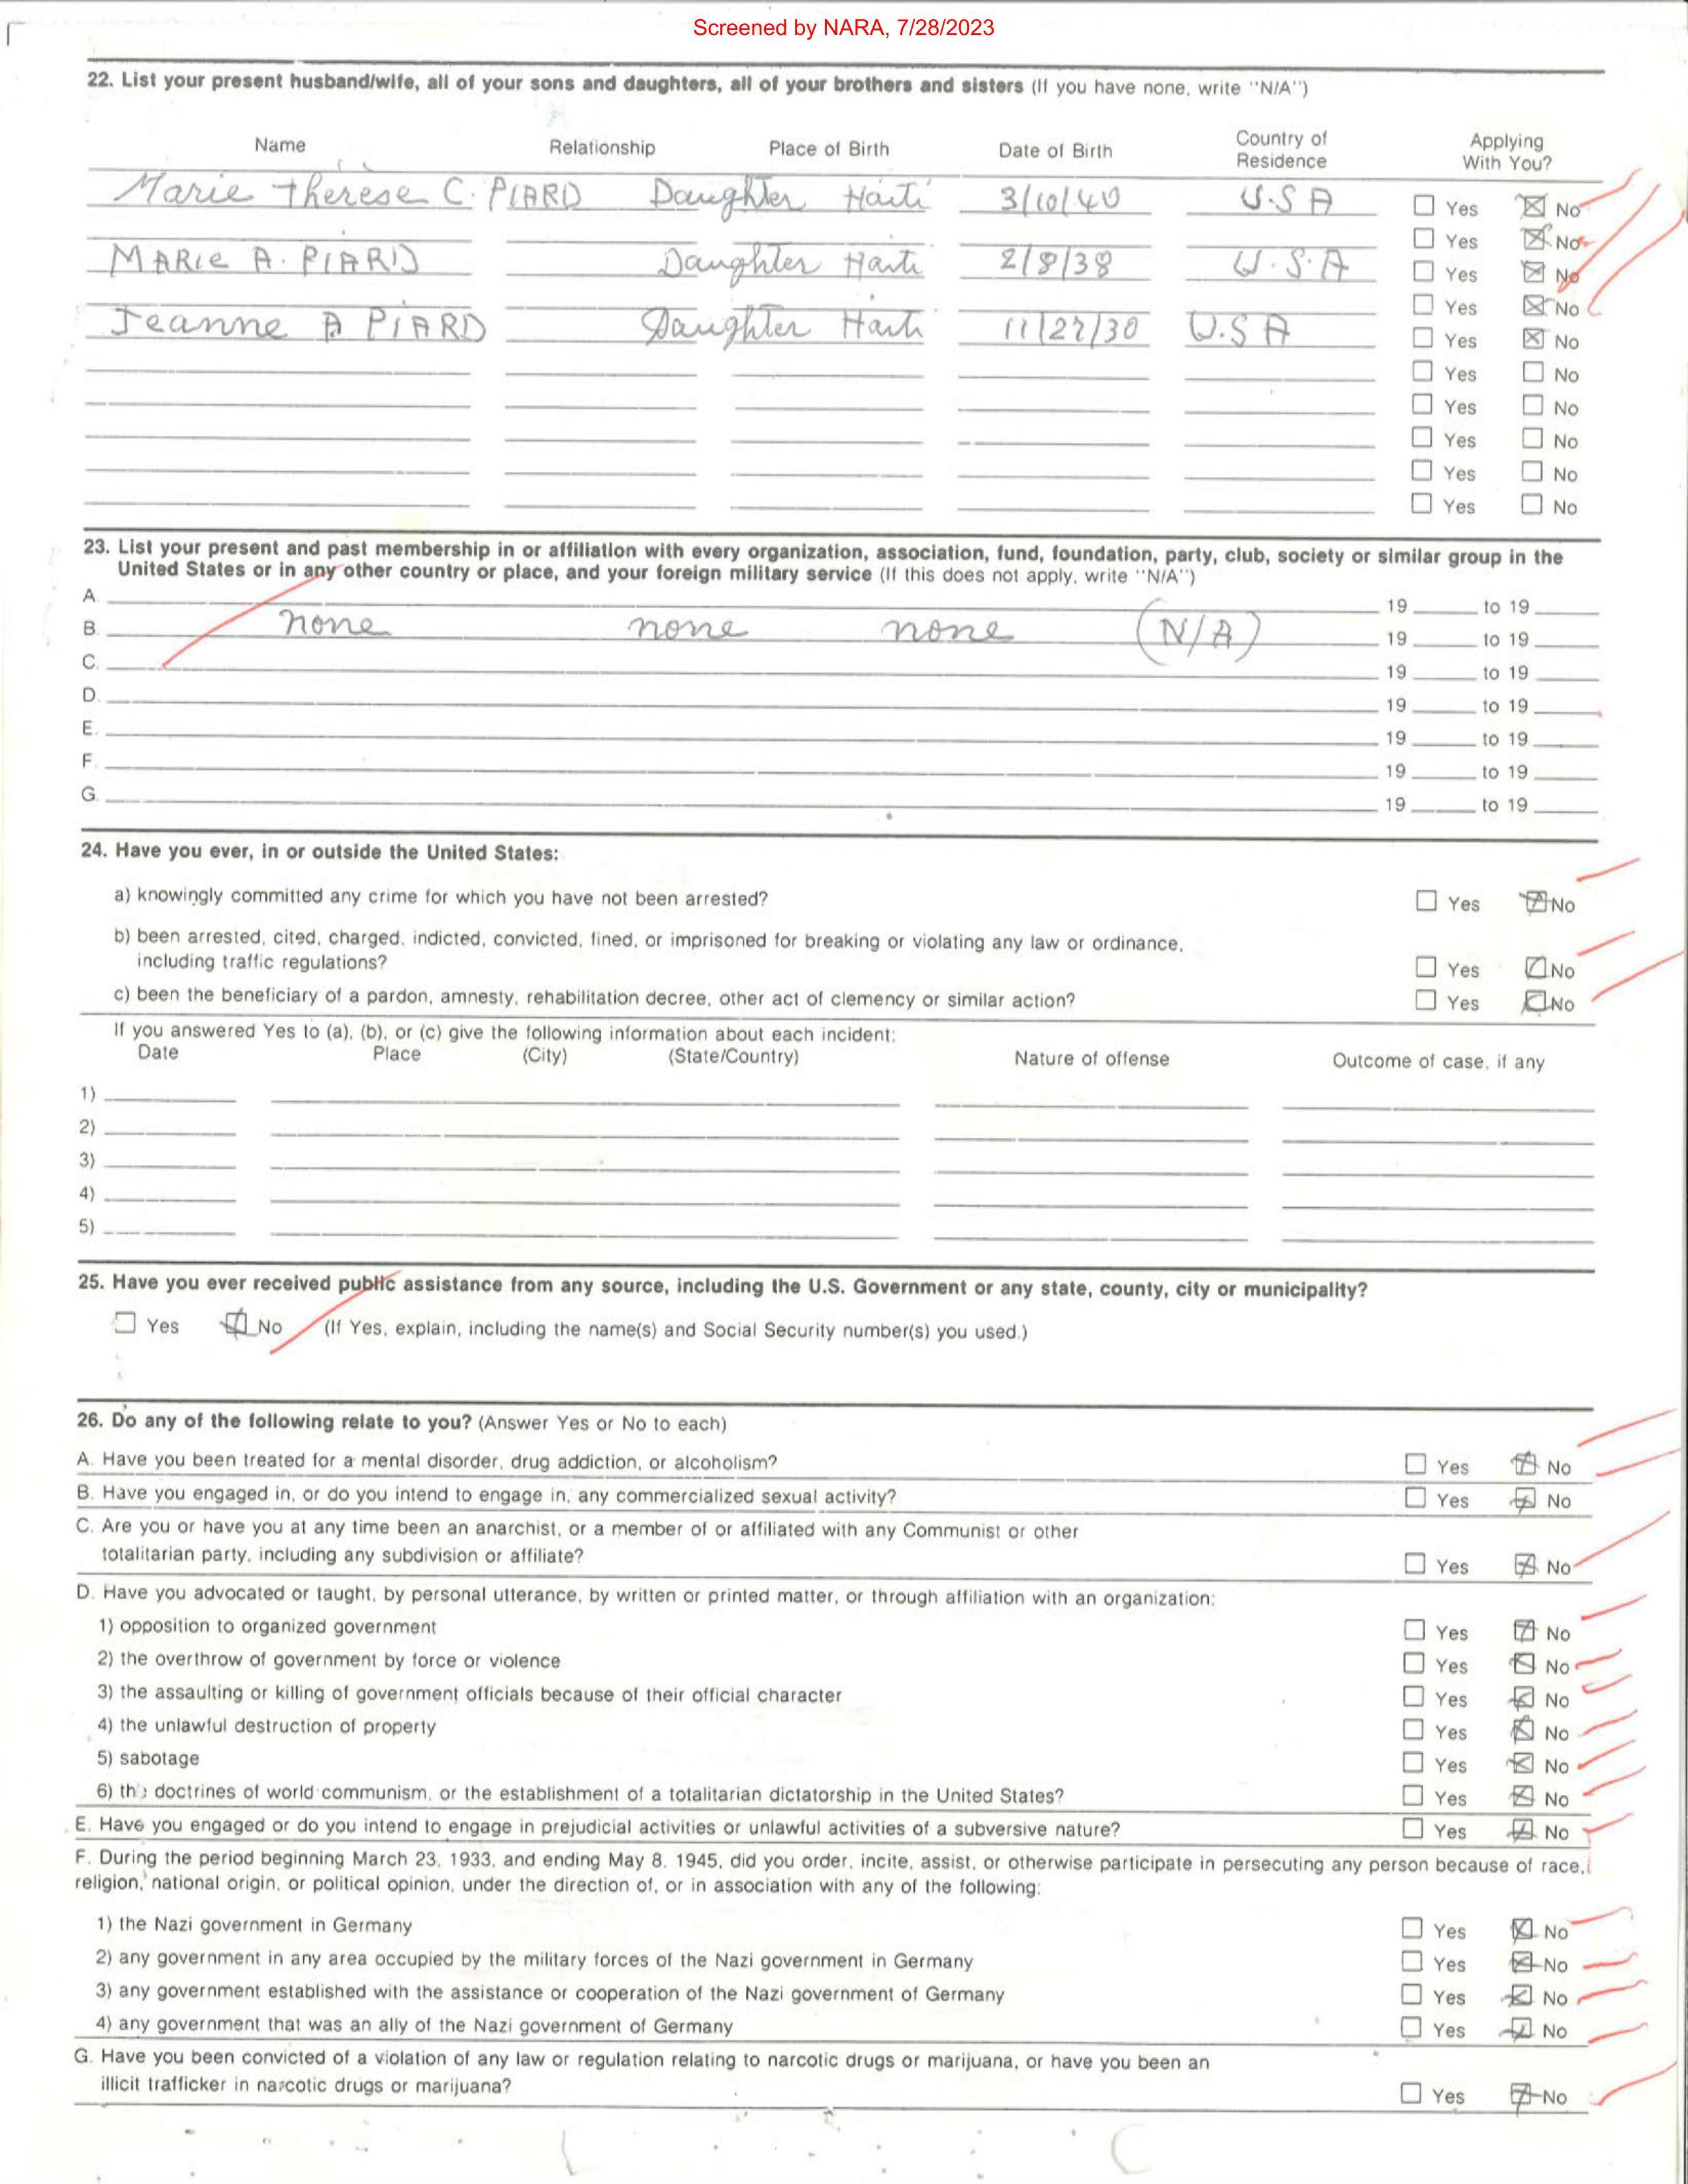 Screened by NARA, 7/28/2023
22. List your present husband/wife, all of your sons and daughters, all of your brothers and sisters (If you have none, write "N/A")
Name Relationship Place of Birth Date of Birth Country of Residence Applying With You?
Marie Therese C. PIARD Daughter Haiti 3/10/40 U.S A Yes No
Yes No
MARIE A. PIARD Daughter Haiti 2/8/38 U.S.A Yes No
Yes No
Jeanne A PIARD Daughter Haiti 11/27/30 U.S A Yes No
Yes No
Yes No
Yes No
Yes No
Yes No
23. List your present and past membership in or affiliation with every organization, association, fund, foundation, party, club, society or similar group in the
United States or in any other country or place, and your foreign military service (If this does not apply, write "N/A")
A. 19 to 19
B. none none none (N/A) 19 to 19
C. 19 to 19
D. 19 to 19
E. 19 to 19
F. 19 to 19
G. 19 to 19
24. Have you ever, in or outside the United States:
a) knowingly committed any crime for which you have not been arrested? Yes No
b) been arrested, cited, charged, indicted, convicted, fined, or imprisoned for breaking or violating any law or ordinance,
including traffic regulations? Yes No
c) been the beneficiary of a pardon, amnesty, rehabilitation decree, other act of clemency or similar action? Yes No
If you answered Yes to (a), (b), or (c) give the following information about each incident:
Date Place (City) (State/Country) Nature of offense Outcome of case, if any
1)
2)
3)
4)
5)
25. Have you ever received public assistance from any source, including the U.S. Government or any state, county, city or municipality?
Yes No (If Yes, explain, including the name(s) and Social Security number(s) you used.)
26. Do any of the following relate to you? (Answer Yes or No to each)
A. Have you been treated for a mental disorder, drug addiction, or alcoholism? Yes No
B. Have you engaged in, or do you intend to engage in, any commercialized sexual activity? Yes No
C. Are you or have you at any time been an anarchist, or a member of or affiliated with any Communist or other
totalitarian party, including any subdivision or affiliate? Yes No
D. Have you advocated or taught, by personal utterance, by written or printed matter, or through affiliation with an organization:
1) opposition to organized government Yes No
2) the overthrow of government by force or violence Yes No
3) the assaulting or killing of government officials because of their official character Yes No
4) the unlawful destruction of property Yes No
5) sabotage Yes No
6) the doctrines of world communism, or the establishment of a totalitarian dictatorship in the United States? Yes No
E. Have you engaged or do you intend to engage in prejudicial activities or unlawful activities of a subversive nature? Yes No
F. During the period beginning March 23, 1933, and ending May 8, 1945, did you order, incite, assist, or otherwise participate in persecuting any person because of race,
religion, national origin, or political opinion, under the direction of, or in association with any of the following:
1) the Nazi government in Germany Yes No
2) any government in any area occupied by the military forces of the Nazi government in Germany Yes No
3) any government established with the assistance or cooperation of the Nazi government of Germany Yes No
4) any government that was an ally of the Nazi government of Germany Yes No
G. Have you been convicted of a violation of any law or regulation relating to narcotic drugs or marijuana, or have you been an
illicit trafficker in narcotic drugs or marijuana? Yes No